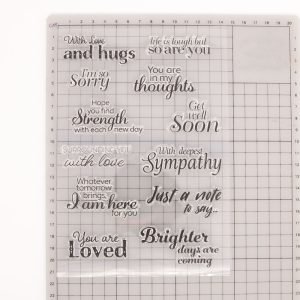 With Love
and hugs
life is tough but
so are you
I'm so
Sorry
You are
in my
thoughts
Hope
you find
Strength
with each new day
Get
well
Soon
with love
With deepest
Sympathy
Whatever
tomorrow
brings,
I am here
for you
Just a note
to say...
You are
Loved
Brighter
days are
coming